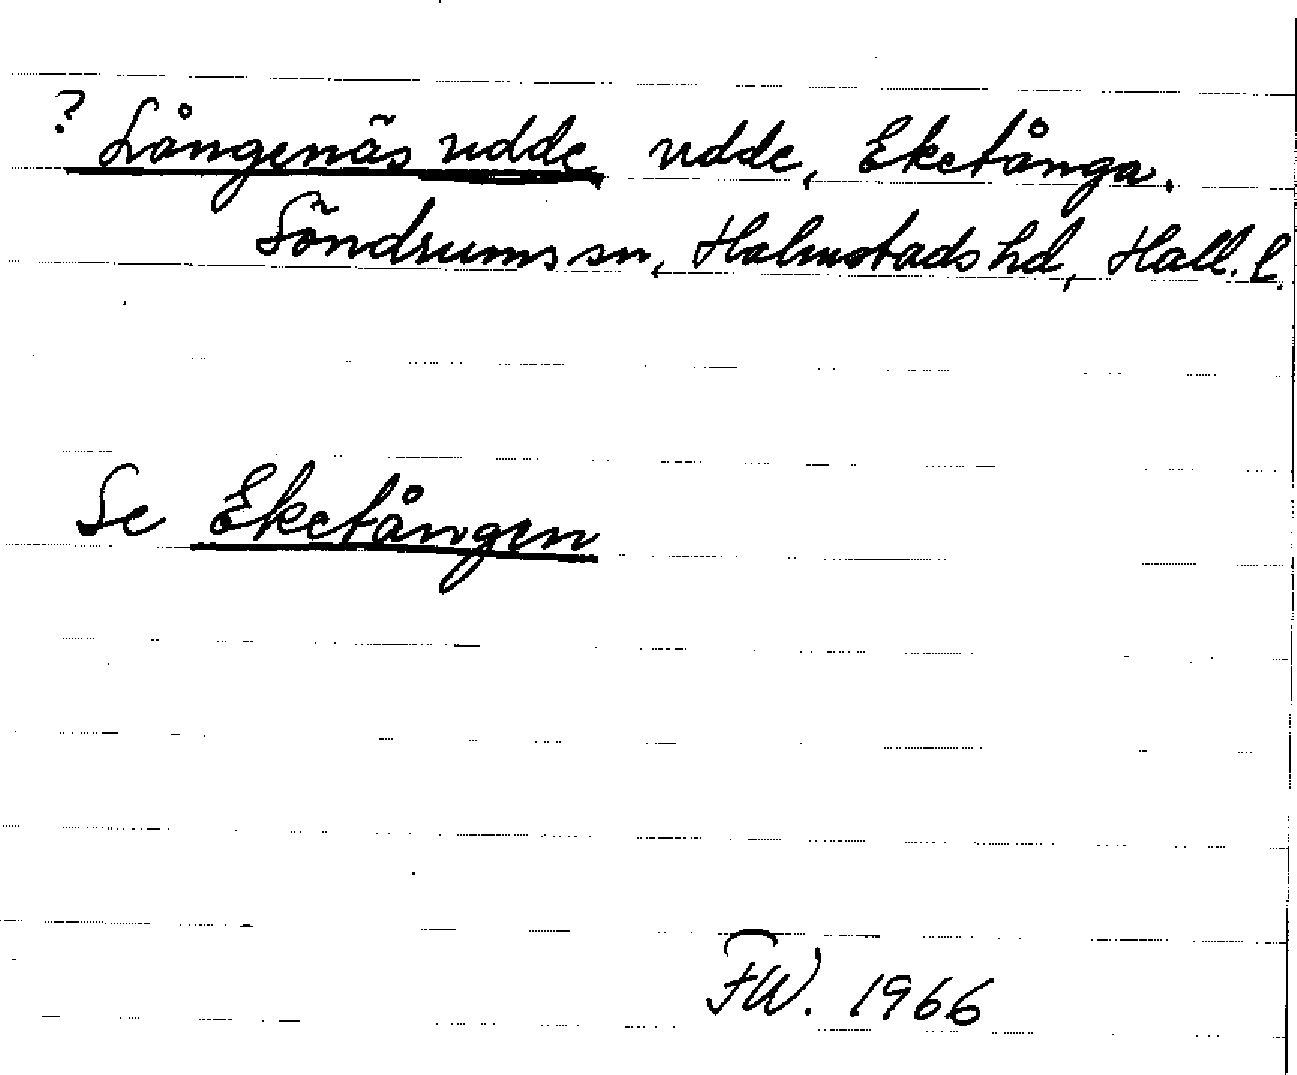 ? Långenäs udde, udde, Eketånga.
Söndrums sn, Halmstads hd, Hall. l.
Se Eketången
FW. 1966